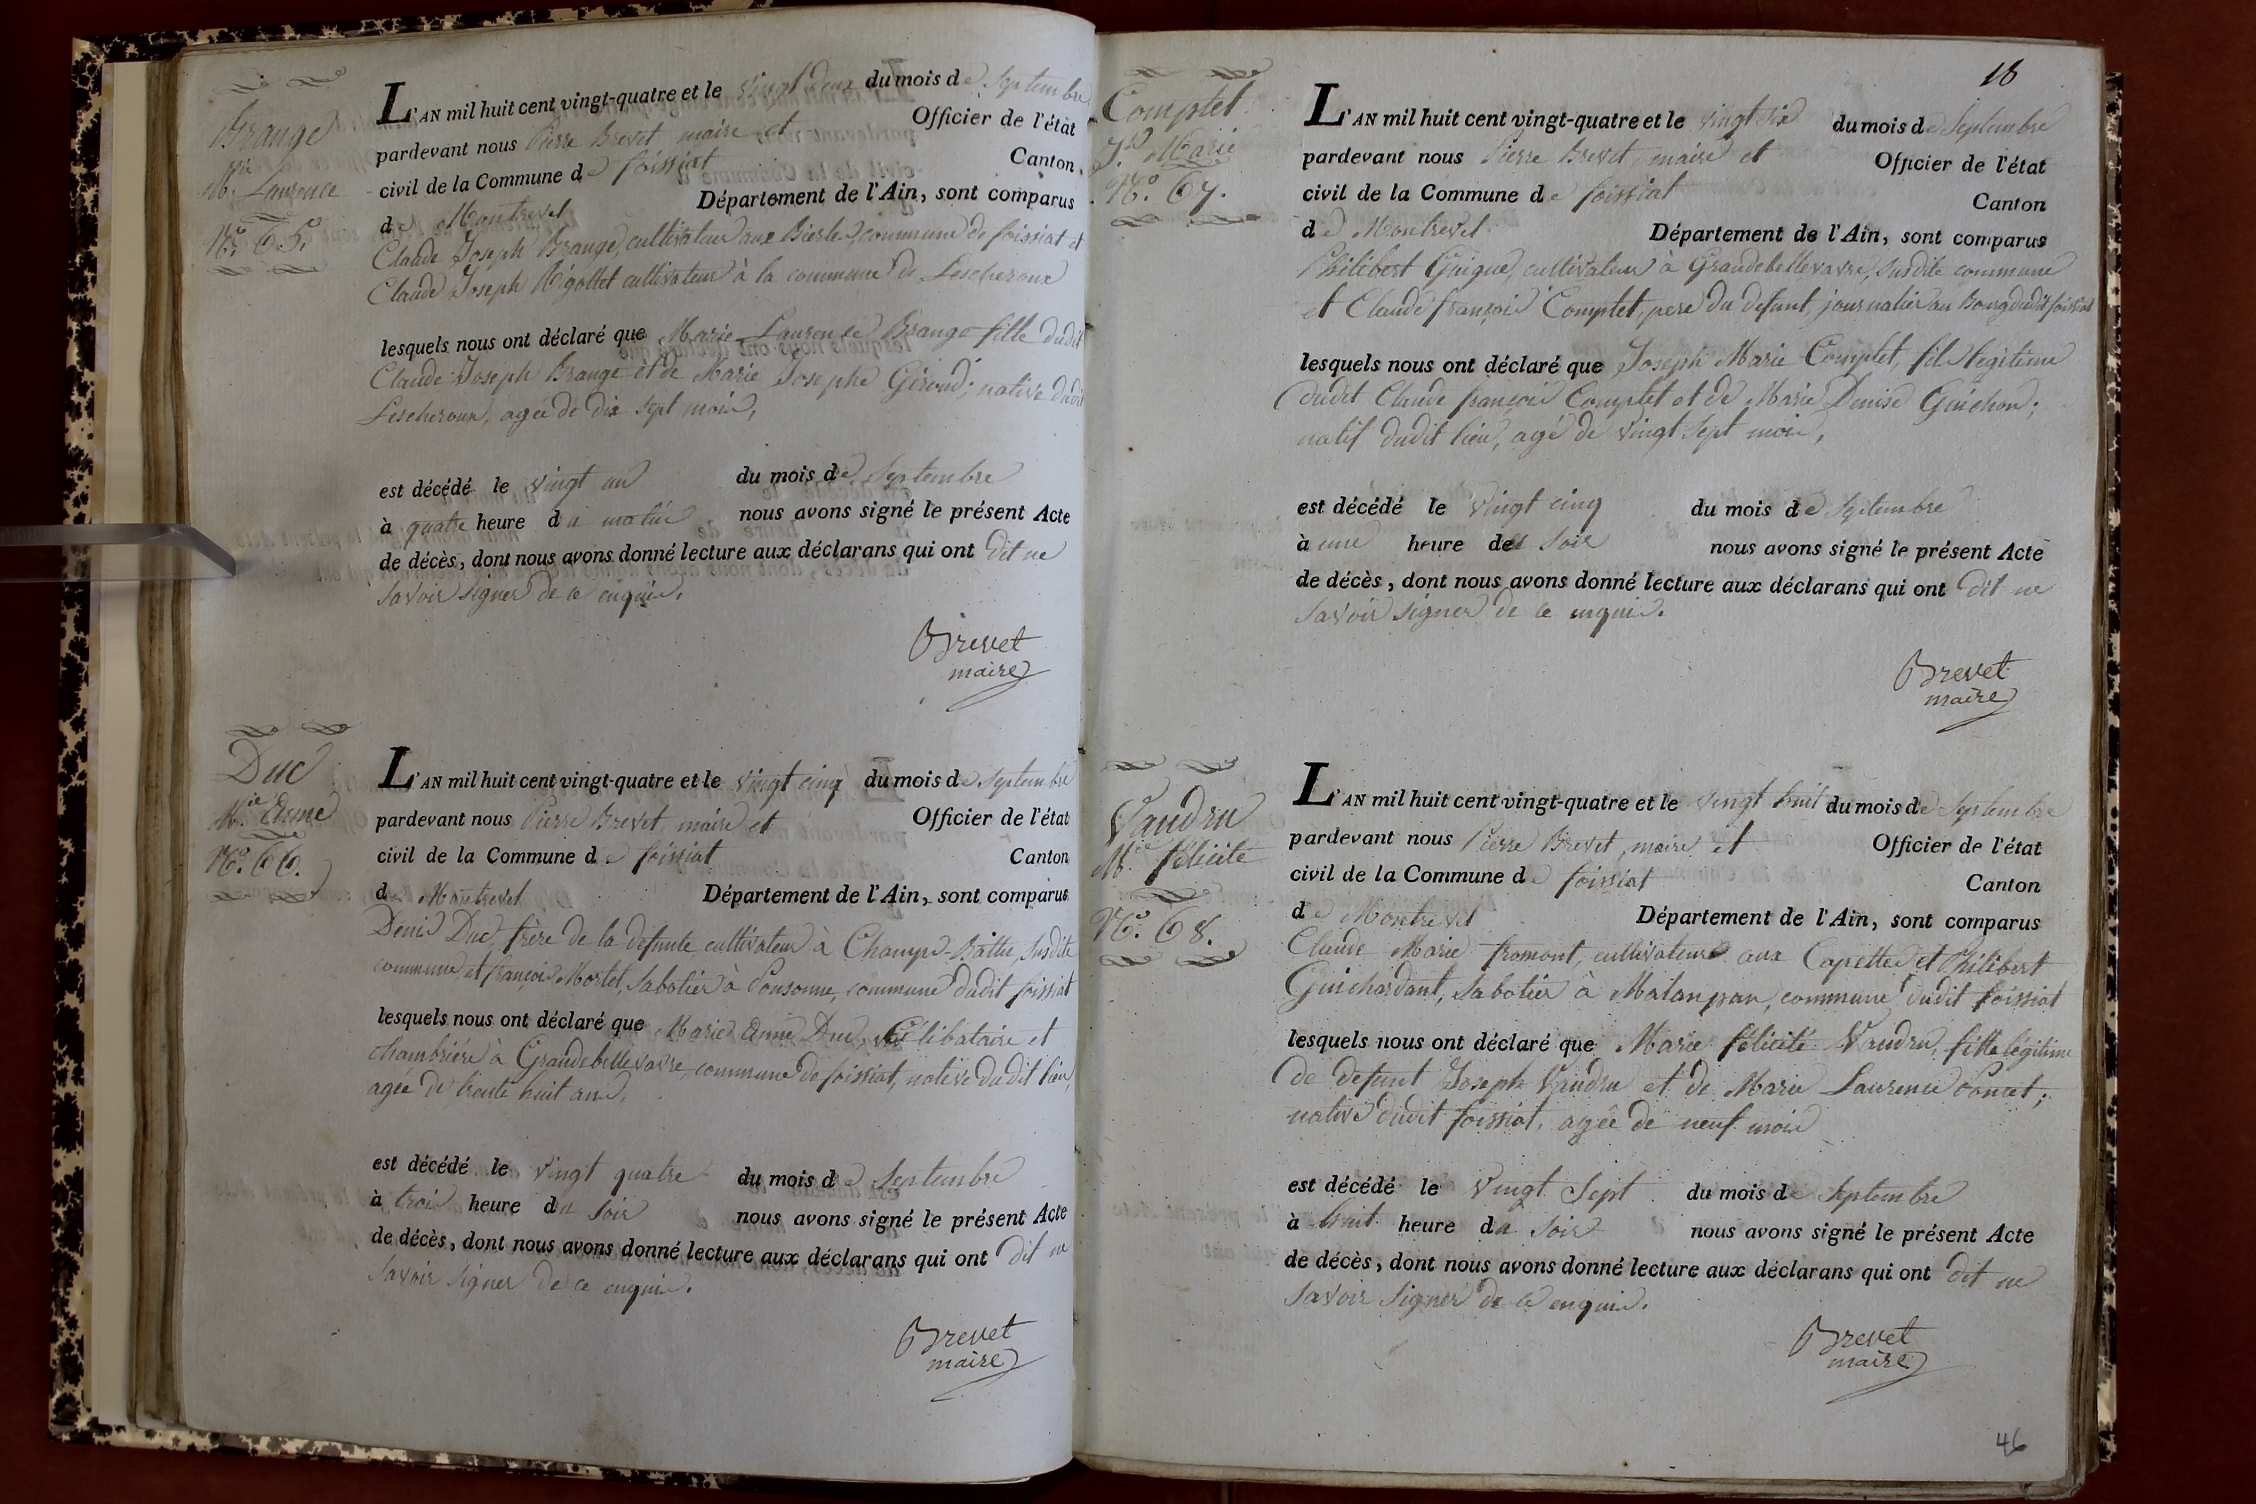 Brange
Mie Laurence
No. 65.
L'AN mil huit cent vingt-quatre et le vingt deux du mois de Septembre
pardevant nous Pierre Brevet maire et Officier de l'état
civil de la Commune de foissiat Canton
de Montrevel Département de l'Ain, sont comparus
Claude Joseph Brange, cultivateur aux commune de foissiat et
Claude Joseph Rigottet cultivateur à la commune de Lescheroux
lesquels nous ont déclaré que Marie Laurence Brange fille dudit
Claude Joseph Brange et de Marie Josephe Giroud; native dudit
Lescheroux, agée de dix sept mois,
est décédé le vingt un du mois de Septembre
à quatre heure du matin nous avons signé le présent Acte
de décès, dont nous avons donné lecture aux déclarans qui ont dit ne
savoir signer de ce enquis.
Brevet
maire
Duc
Mie Anne
No. 66.
L'AN mil huit cent vingt-quatre et le vingt cinq du mois de Septembre
pardevant nous Pierre Brevet maire et Officier de l'état
civil de la Commune de foissiat Canton
de Montrevel Département de l'Ain, sont comparus
Denis Duc, frère de la defunte, cultivateur à Champ-Battu, susdite
commune, et françois Mortet, Sabotier à Consonne, commune dudit foissiat
lesquels nous ont déclaré que Marie Anne Duc, Célibataire et
chambrière à Grandebellevavre, commune de foissiat, native dudit lieu,
agée de trente huit ans,
est décédé le vingt quatre du mois de Septembre
à trois heure du soir nous avons signé le présent Acte
de décès, dont nous avons donné lecture aux déclarans qui ont dit ne
savoir signer de ce enquis.
Brevet
maire
18
Complet
Jh Marie
No. 67.
L'AN mil huit cent vingt-quatre et le vingt six du mois de Septembre
pardevant nous Pierre Brevet, maire et Officier de l'état
civil de la Commune de foissiat Canton
de Montrevel Département de l'Ain, sont comparus
Philibert Guigue, cultivateur à Grandebellevavre, susdite commune
et Claude françois Complet, pere du defunt, journalier au Bourg dudit foissiat
lesquels nous ont déclaré que Joseph Marie Complet, fils légitime
dudit Claude françois Complet et de Marie Denise Guichon;
natif dudit lieu, agé de vingt sept mois,
est décédé le vingt cinq du mois de Septembre
à une heure de soir nous avons signé le présent Acte
de décès, dont nous avons donné lecture aux déclarans qui ont dit ne
savoir signer de ce enquis.
Brevet
maire
Vaudru
Mie félicité
No. 68.
L'AN mil huit cent vingt-quatre et le vingt huit du mois de Septembre
pardevant nous Pierre Brevet, maire et Officier de l'état
civil de la Commune de foissiat Canton
de Montrevel Département de l'Ain, sont comparus
Claude Marie fromont, cultivateur aux Capettes et Philibert
Guichardant, Sabotier à Malanpan, commune dudit foissiat
lesquels nous ont déclaré que Marie félicité Vaudru, fille légitime
de defunt Joseph Vaudru et de Marie Laurence Poncet;
native dudit foissiat, agée de neuf mois
est décédé le vingt Sept du mois de Septembre
à huit heure du soir nous avons signé le présent Acte
de décès, dont nous avons donné lecture aux déclarans qui ont dit ne
savoir signer de ce enquis.
Brevet
maire
46